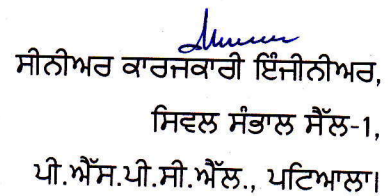 ਸੀਨੀਅਰ ਕਾਰਜਕਾਰੀ ਇੰਜੀਨੀਅਰ,
ਸਿਵਲ ਸੰਭਾਲ ਸੈੱਲ-1,
ਪੀ.ਐੱਸ.ਪੀ.ਸੀ.ਐੱਲ., ਪਟਿਆਲਾ।